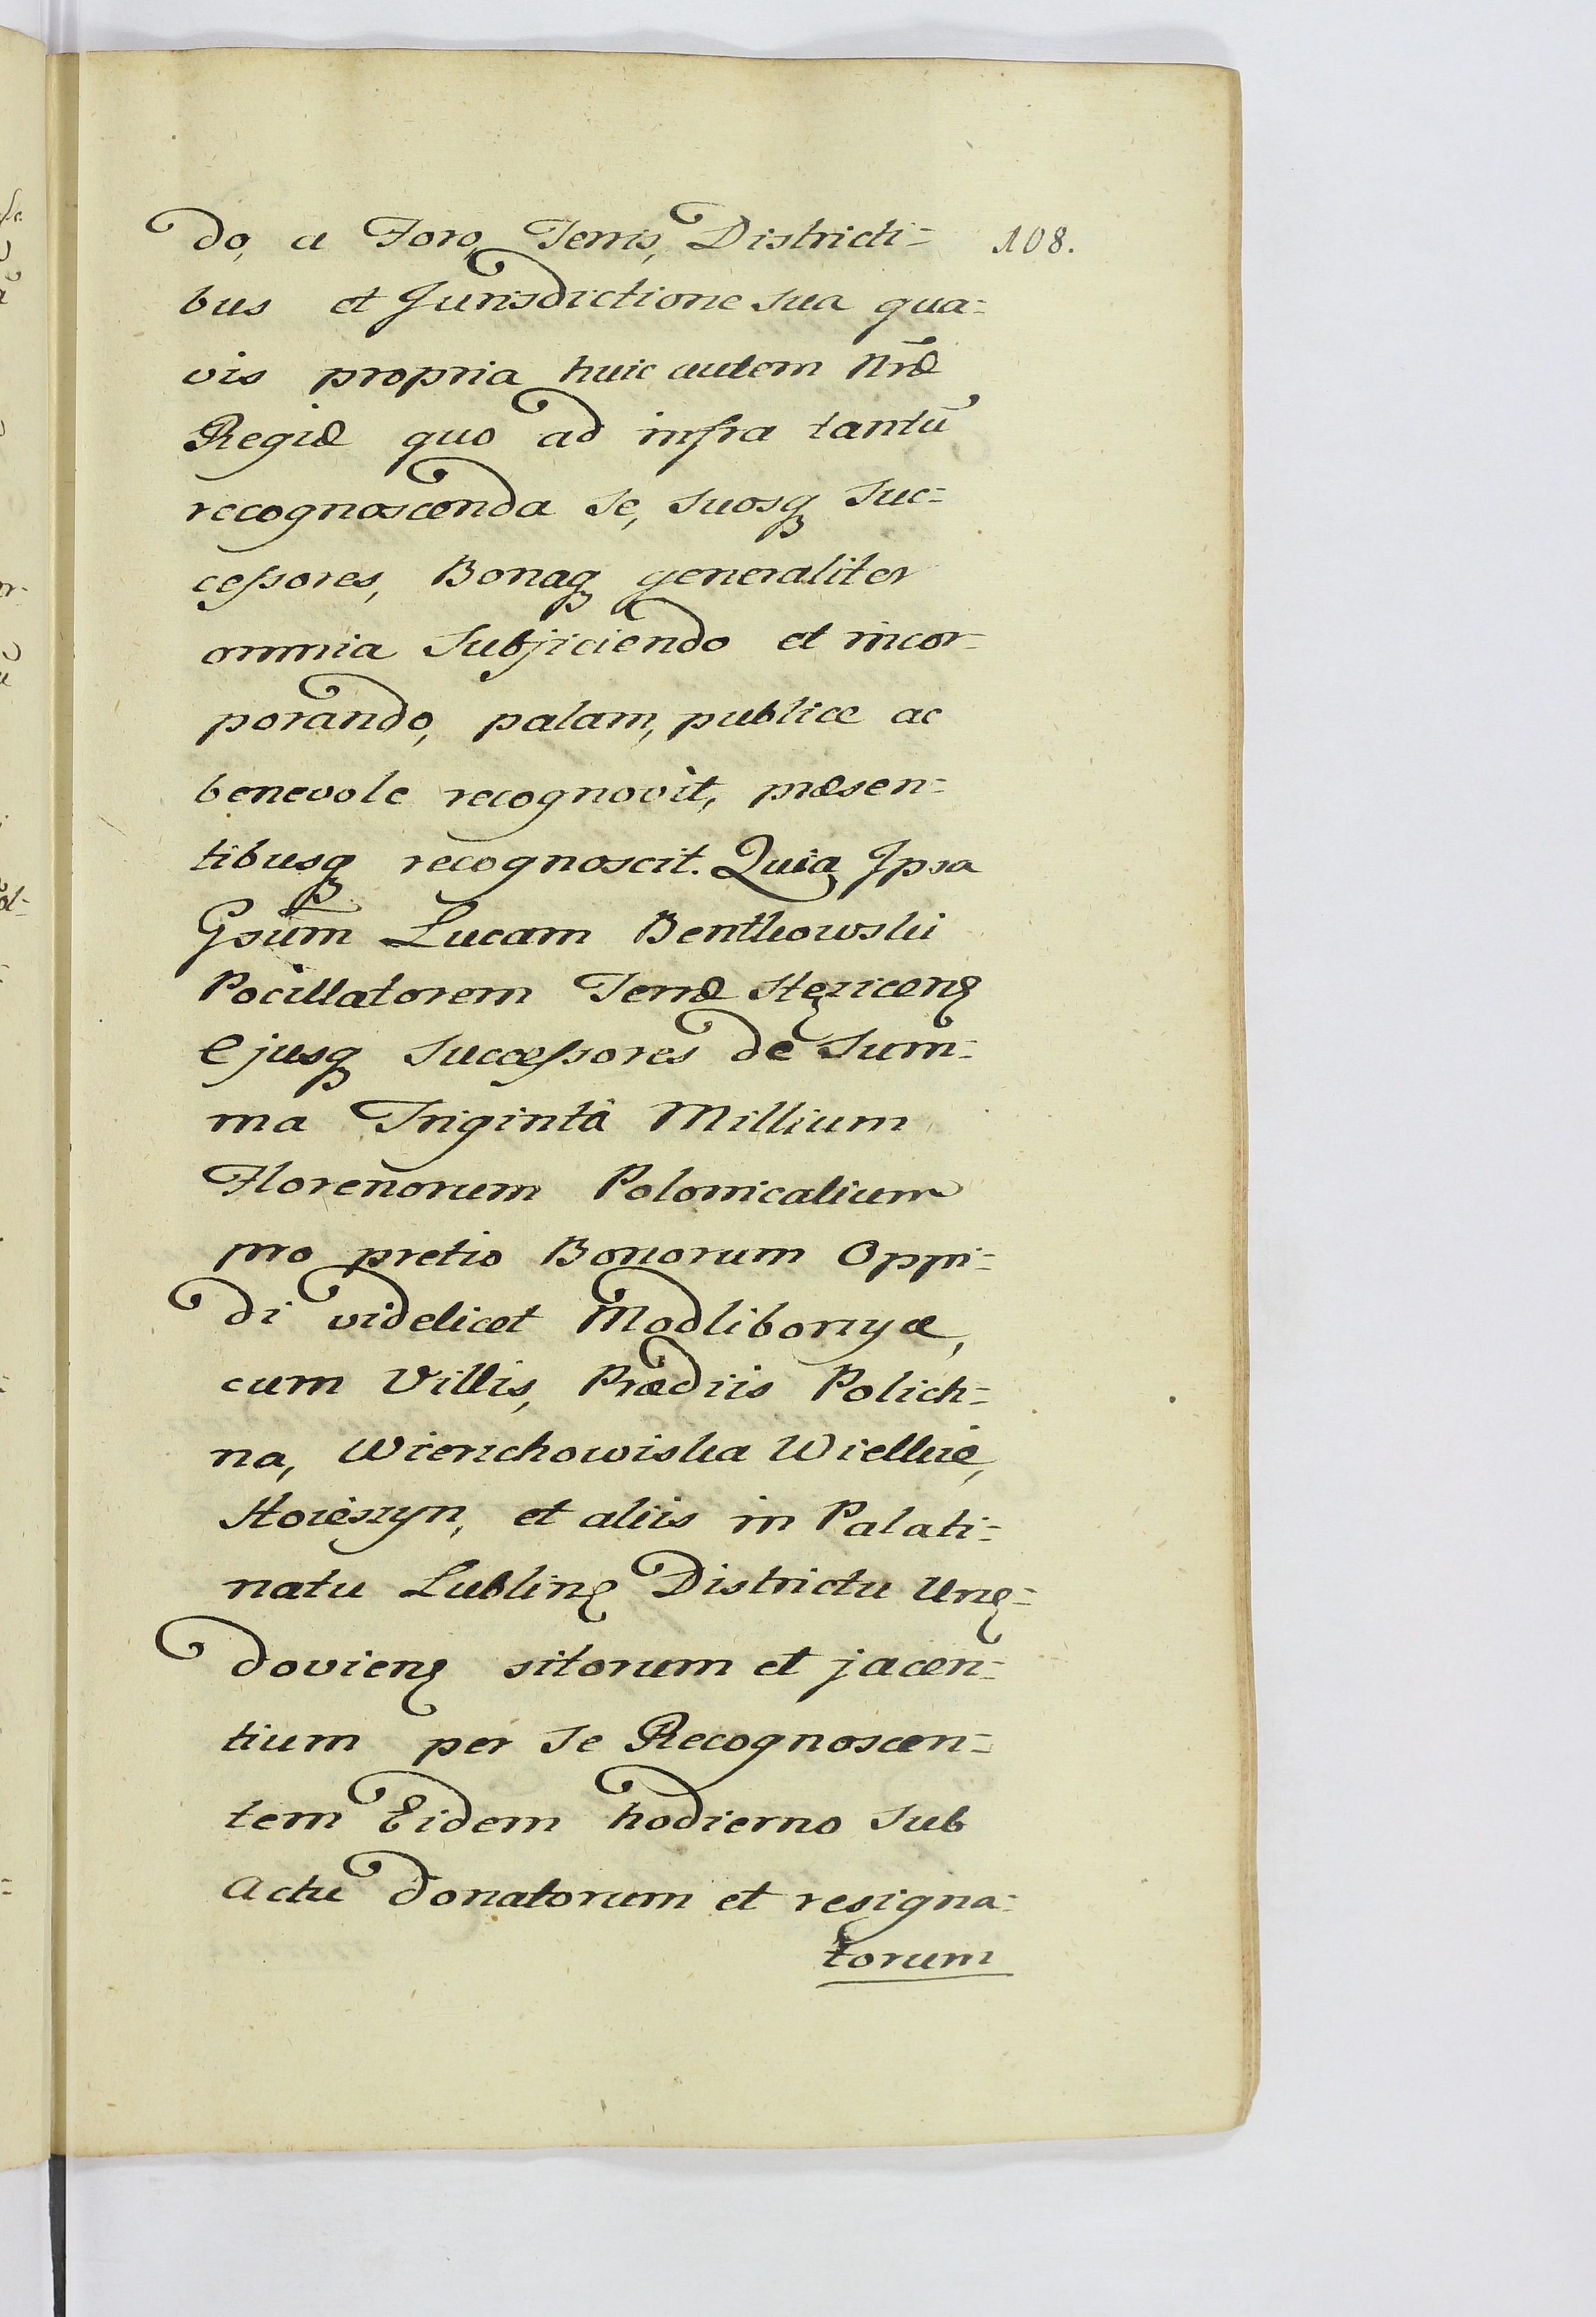 do, a Foro, Terris, Districti= 108.
bus et Jurisdictione sua qua=
vis propria huic autem Nræ
Regiæ quo ad infra tantū
recognoscenda se, suosq suc=
cessores, Bonaq generaliter
omnia subjiciendo et incor=
porando, palam, publice ac
benevole recognovit, præsen=
tibusq recognoscit. Quia Ipsa
Gsum Lucam Bentkowski
Pocillatorem Terræ Stęzicens
Ejusq successores de Sum=
ma Triginta Millium
Florenorum Polonicalium
pro pretio Bonorum Oppi=
di videlicet Modliborzyce,
cum Villis, Prædiis Polich=
na, Wierzchowiska Wielkie,
Stojeszyn, et aliis in Palati=
natu Lublins Districtu Urzę=
doviens sitorum et jacen=
tium per se Recognoscen=
tem Eidem hodierno sub
Actu donatorum et resigna=
torum